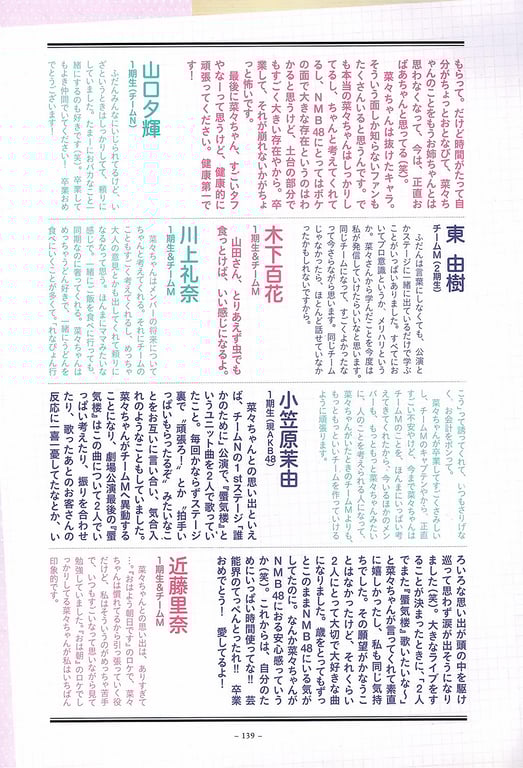 もらって。だけど時間がたって自
分がちょっとおとなびて、菜々ち
ゃんのことをもうお姉ちゃんとは
思わなくなって、今は、正直お
ばあちゃんと思ってる（笑）。
菜々ちゃんは抜けたキャラ。
そういう面しか知らないファンも
たくさんいると思うんです。で
も本当の菜々ちゃんはしっかりし
てるし、ちゃんと考えてくれて
るし、NMB48にとってはボケ
の面で大きな存在というのはわ
かると思うけど、土台の部分で
もすごく大きい存在やから。卒
業して、それが崩れないかがちょ
っと怖いです。
最後に菜々ちゃん、すごいタフ
やなーって思うけど、健康的に
頑張ってください。健康第一で
す！
山口夕輝
1期生（チームN）
ふだんみんなにいじられてるけど、い
ざというときはしっかりしてて、頼りに
していました。たまーにおバカなこと一
緒にするのも好きです（笑）。卒業して
もよき仲間でいてください！ 卒業おめ
でとうございます！
東 由樹
チームM（2期生）
ふだんは言葉にしなくても、公演と
かステージに一緒に出ているだけで学ぶ
ことがいっぱいありました。すべてにお
いてプロ意識というか、メリハリという
か。菜々さんから学んだことを今度は
私が発信していけたらいいなと思います。
同じチームになって、すごくよかったな
って今さらながら思います。同じチーム
じゃなかったら、ほとんど話せていなか
ったかもしれないですから。
木下百花
1期生&チームM
山田さん、とりあえず虫でも
食っとけば、いい感じになるよ。
川上礼奈
1期生&チームM
菜々ちゃんはメンバーの将来について
ちゃんと考えてくれる。それにチームの
こともすごく考えてくれるし、めっちゃ
大人の意見とかも出してくれて頼りに
なるなって思う。ほんまにママみたいな
感じで。一緒にご飯を食べに行っても、
同期なのに奢ってくれる。菜々ちゃんは
めっちゃうどん好きで、一緒にうどんを
食べにいくことが多くて。「れなぴょん行
こう」って誘ってくれて、いつもさりげな
くお会計をポンって。
菜々ちゃんが卒業してすごくさみしい
し、チームMのキャプテンやから、正直
すごい不安やけど、今まで菜々ちゃんは
チームMのことを、ほんまにいっぱい考
えてきてくれたから、今いるほかのメン
バーも、もっともっと菜々ちゃんみたい
に、人のことを考えられる人になって、
菜々ちゃんがいたときのチームMよりも、
もっともっといいチームを作っていける
ように頑張ります。
小笠原茉由
1期生（現AKB48）
菜々ちゃんとの思い出といえ
ば、チームNの1stステージ『誰
かのために』公演で、『蜃気楼』と
いうユニット曲を2人で歌ってい
たこと。毎回かならずステージ
裏で“頑張ろー”とか“拍手い
っぱいもらったるぞ”みたいなこ
とをお互いに言い合い、気合入
れのようなこともしていました。
菜々ちゃんがチームMへ異動する
ことになり、劇場公演最後の『蜃
気楼』はこの曲について2人でい
っぱい考えたり、振りを合わせ
たり、歌ったあとのお客さんの
反応に一喜一憂してたなとか、い
ろいろな思い出が頭の中を駆け
巡って思わず涙が出そうになり
ました（笑）。大きなライブをす
ることが決まったときに、「2人
でまた『蜃気楼』歌いたいな〜」
と菜々ちゃんが言ってくれて素直
に嬉しかったし、私も同じ気持
ちでした。その願望がかなうこ
とはなかったけど、それくらい
2人にとって大切で大好きな曲
になりました。歳をとってもずっ
とこのままNMB48にいる気が
してたのに。なんか菜々ちゃんが
NMB48におる安心感っていう
か（笑）。これからは、自分のた
めにいっぱい時間使ってな!! 芸
能界のてっぺんとったれ!! 卒業
おめでとう！ 愛してるよー！
近藤里奈
1期生&チームM
菜々ちゃんとの思い出は、ありすぎて
…。『おはよう朝日です』のロケで、菜々
ちゃんは慣れてるから引っ張っていく役
だけど、私はそういうのがめっちゃ苦手
で、いつもすごいなって思いながら見て
勉強していました。『おは朝』のロケでし
っかりしてる菜々ちゃんが私はいちばん
印象的です。
– 139 –